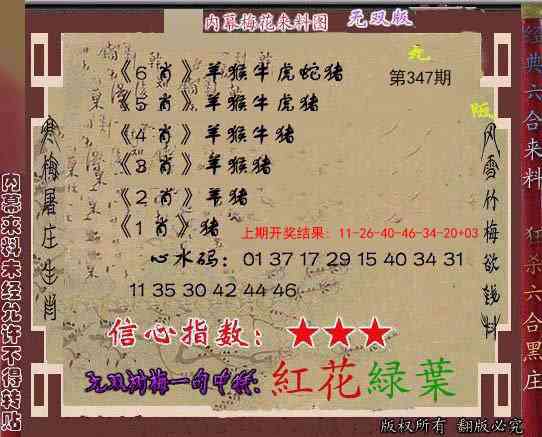 内幕梅花来料图 无双版
《6肖》羊猴牛虎蛇猪
第347期
《5肖》羊猴牛虎猪
《4肖》羊猴牛猪
《3肖》羊猴猪
《2肖》羊猪
《1肖》猪
上期开奖结果：11-26-40-46-34-20+03
心水码：01 37 17 29 15 40 34 31
11 35 30 42 44 46
信心指数：★★★
紅花緑葉
版权所有 翻版必究
寒梅屠庄生肖
内幕来料未经允许不得转贴
风雪竹梅欲钱料
经典六合来料 狂杀六合黑庄